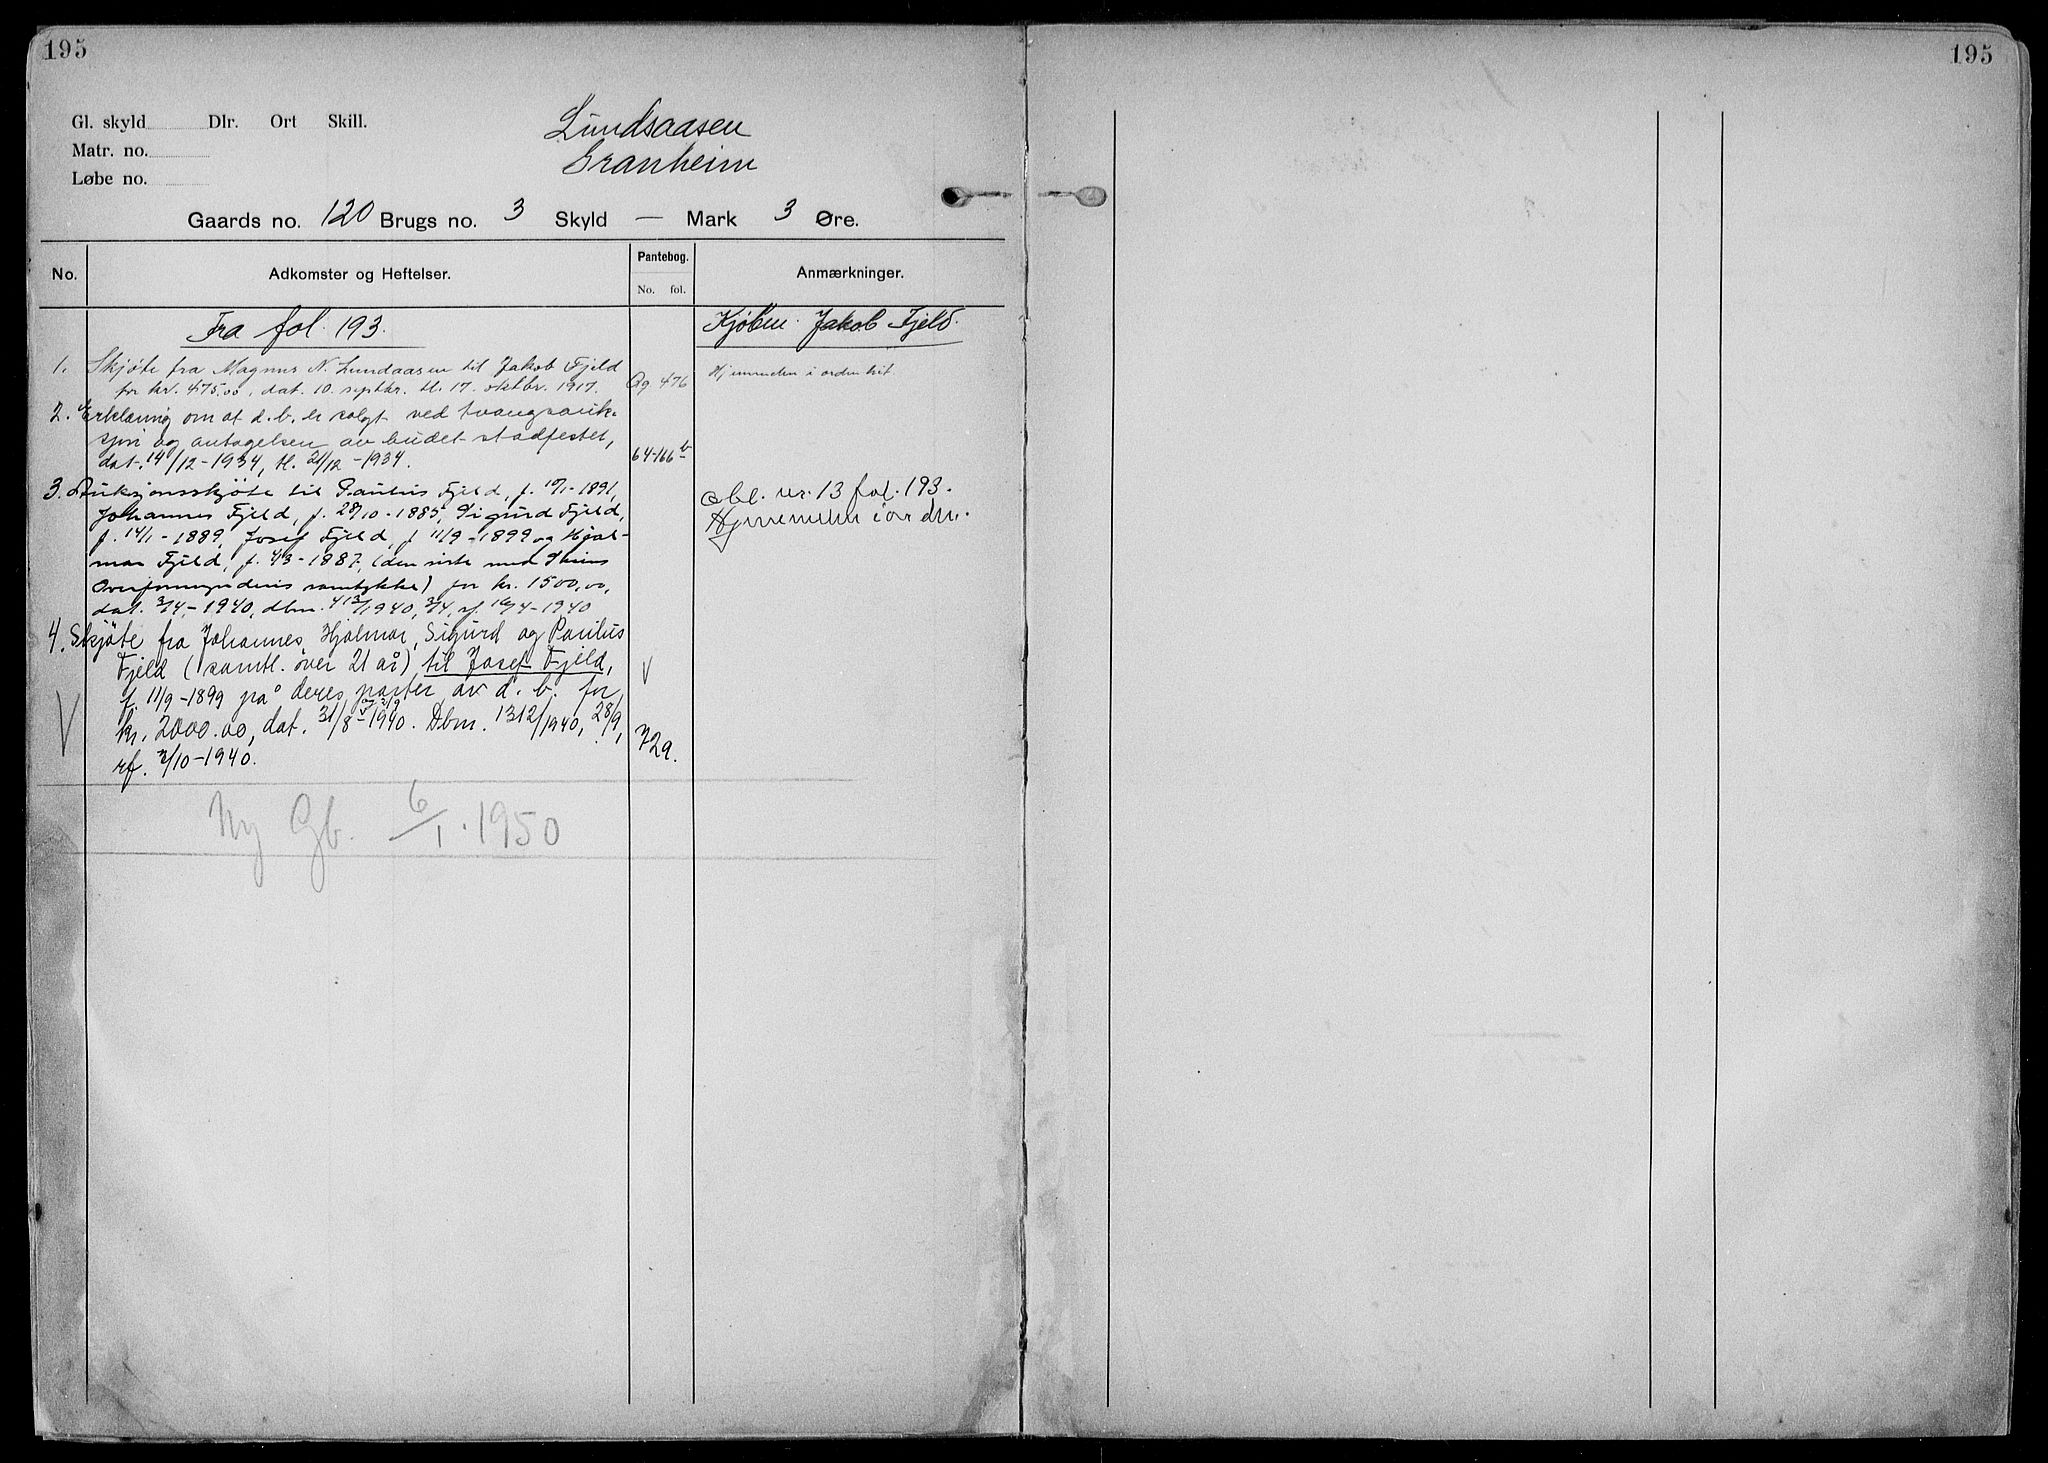 195
195
Gl. skyld Dlr. Ort Skill.
Matr. no.
Løbe no.
Lundsaasen
Granheim
Gaards no. 120 Brugs no. 3 Skyld — Mark 3 Øre.
No. Adkomster og Heftelser. Pantebog. No. fol. Anmærkninger.
Fra fol. 193.
Kjøben. Jakob Fjeld.
1. Skjøte fra Magnus N. Lundaasen til Jakob Fjeld
for kr. 475.00, dat. 10. septbr. tl. 17. oktbr. 1917. 476
Hjemmelen i orden
2. Erklæring om at d.b. er solgt ved tvangsauk-
sjon og antagelsen av budet stadfestet,
dat. 14/12-1934, tl. 21/12-1934. 64-166b
3. Auksjonsskjøte til Paulus Fjeld, f. 10/1-1891,
Johannes Fjeld, f. 28/10-1885, Sigurd Fjeld,
f. 14/1-1889, Josef Fjeld, f. 11/9-1899 og Hjal-
mar Fjeld, f. 4/3-1887, (den siste med
Overformynderis samtykke) for kr. 1500,00,
dat. 3/4-1940, dbnr. 413/1940, 3/4, rf. 16/4-1940
obl. nr. 13 fol. 193.
Hjemmelen i orden.
4. Skjøte fra Johannes, Hjalmar, Sigurd og Paulus
Fjeld (samtl. over 21 år) til Josef Fjeld,
f. 11/9-1899 på deres parter av d. b. for
kr. 2000.00, dat. 31/8 -1940. Dbnr. 1312/1940, 28/9,
rf. 2/10-1940. 729.
Ny Gb. 6/1.1950